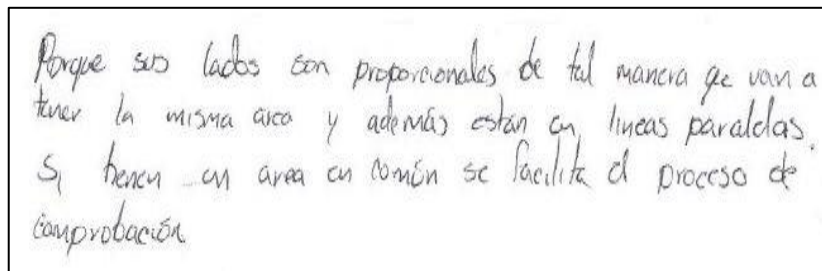 Porque sus lados son proporcionales de tal manera que van a
tener la misma área y además están en líneas paralelas.
Si tienen un área en común se facilita el proceso de
comprobación